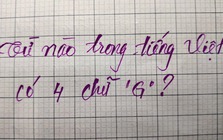 Từ nào trong tiếng Việt
có 4 chữ 'G'?